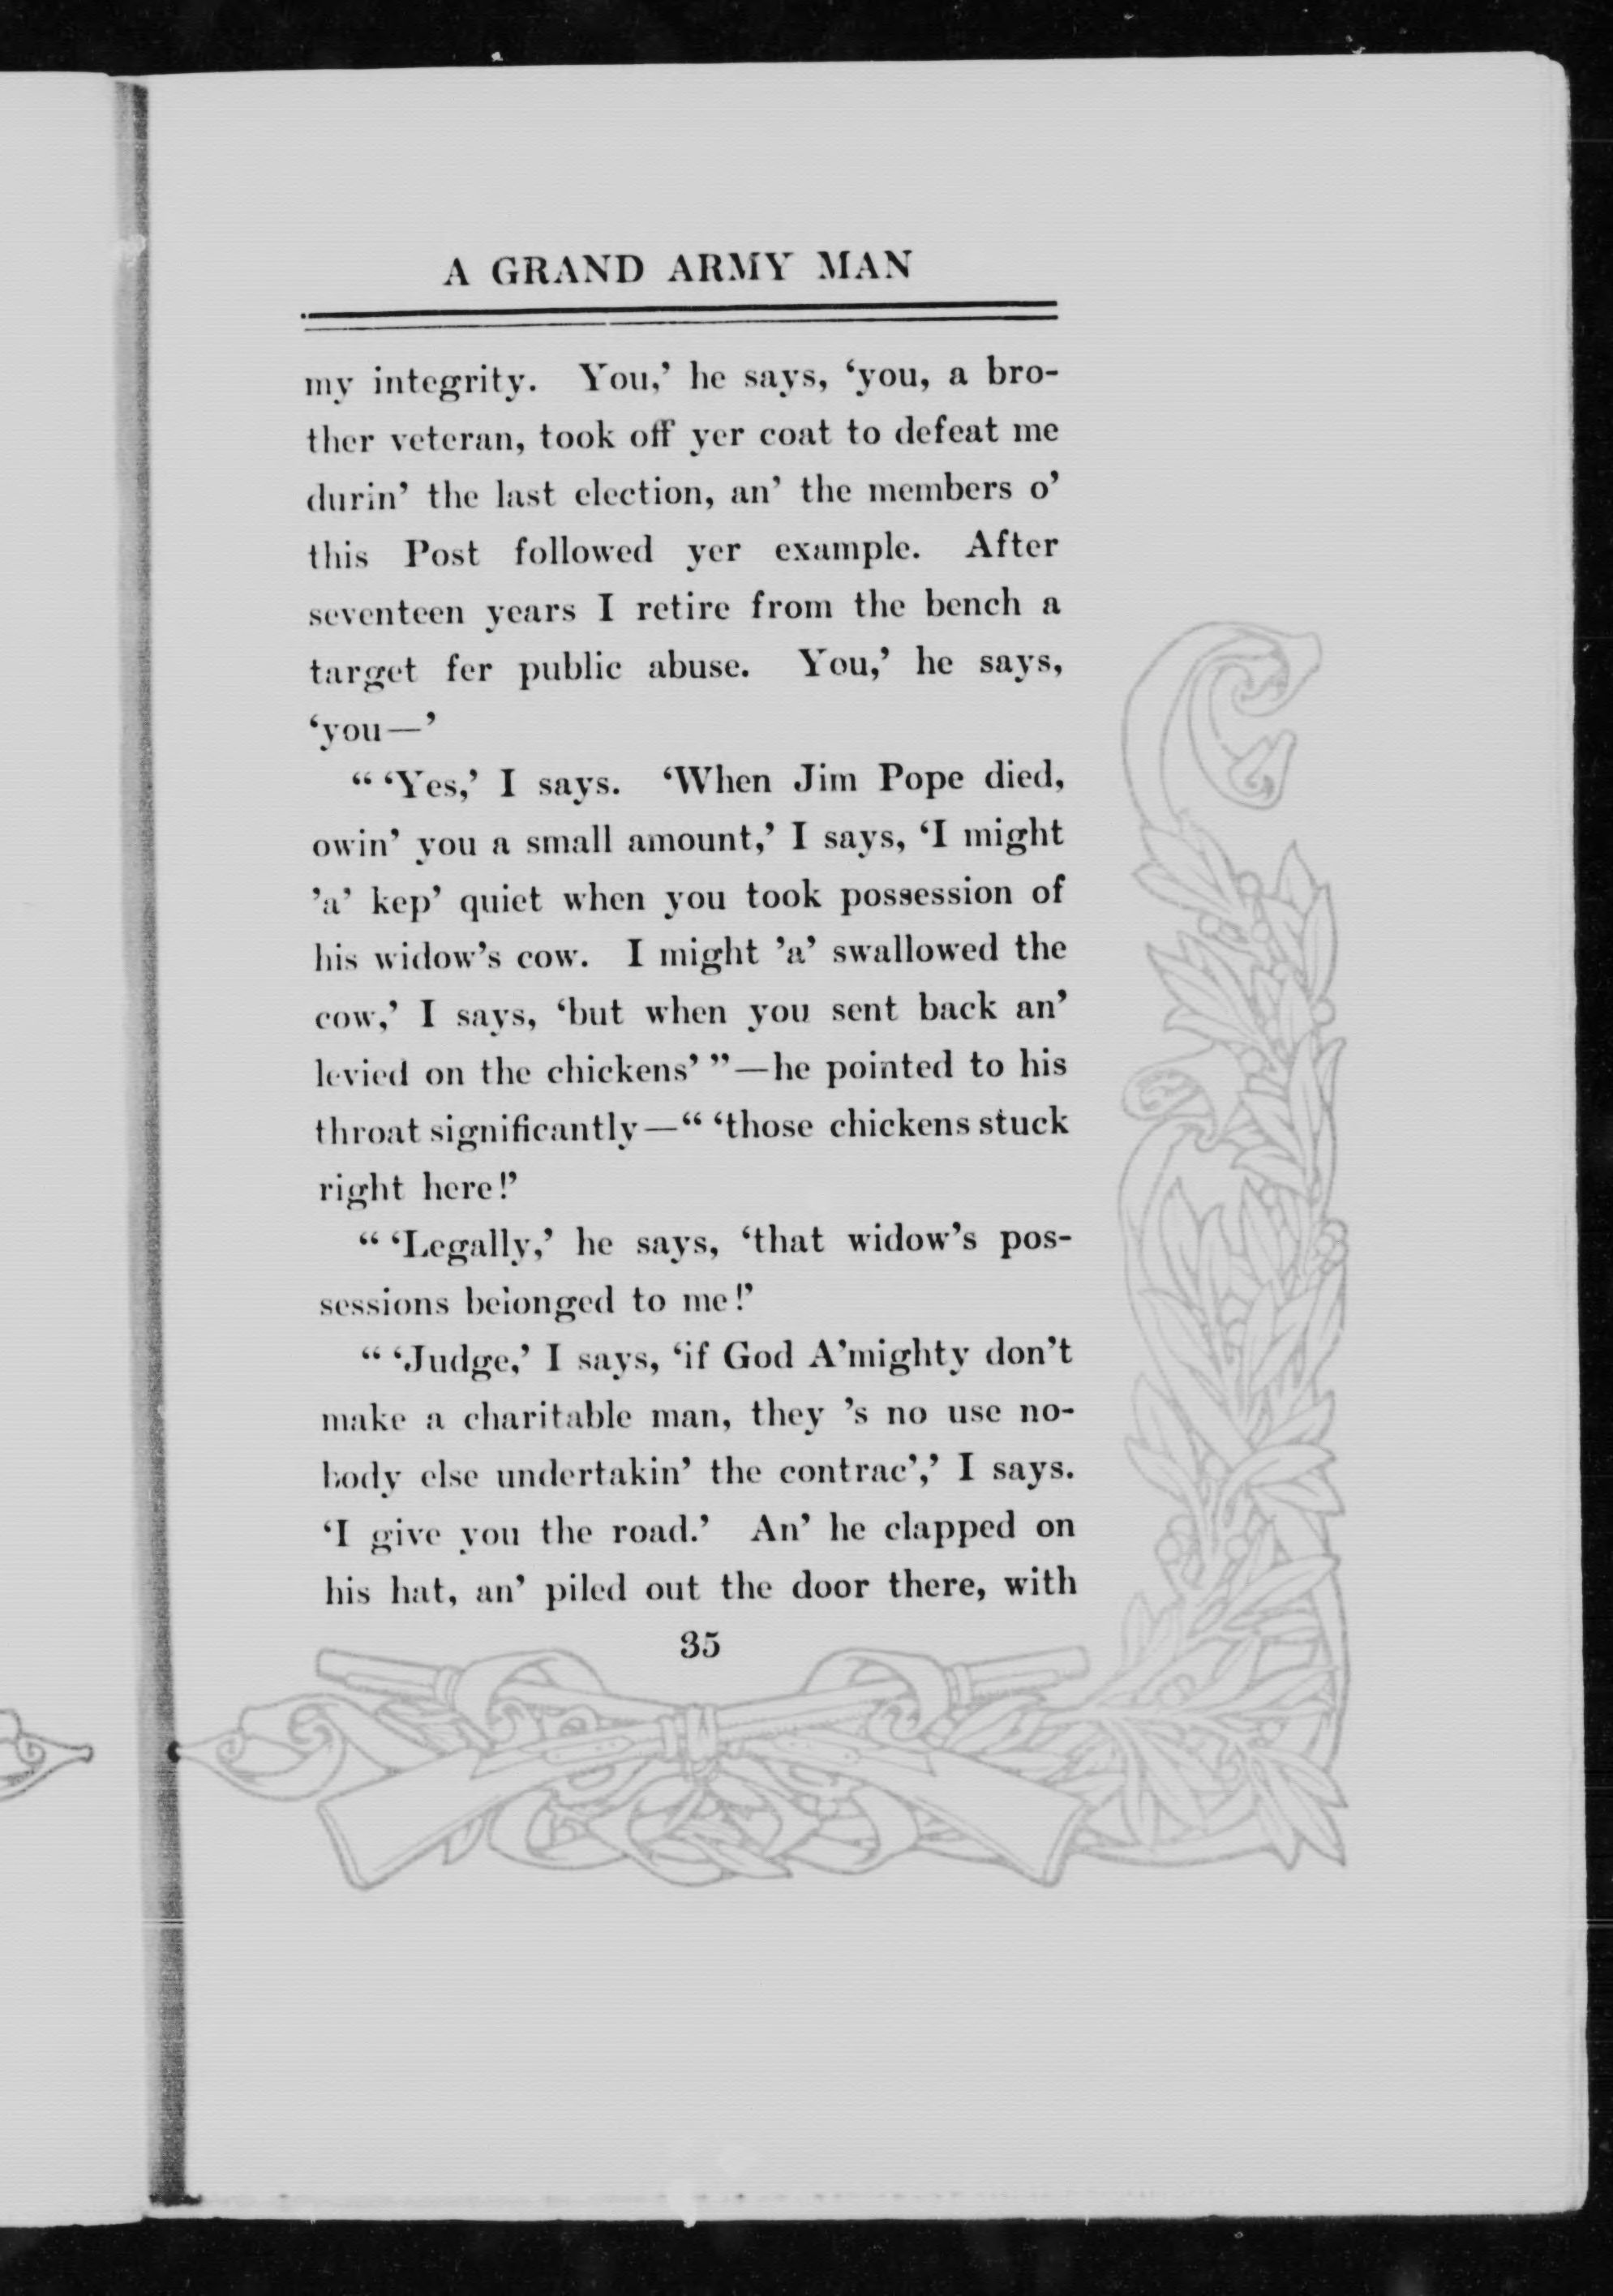 A GRAND ARMY MAN
my integrity. You,’ he says, ‘you, a bro-
ther veteran, took off yer coat to defeat me
durin’ the last election, an’ the members o’
this Post followed yer example. After
seventeen years I retire from the bench a
target fer public abuse. You,’ he says,
‘you—’
“ ‘Yes,’ I says. ‘When Jim Pope died,
owin’ you a small amount,’ I says, ‘I might
’a’ kep’ quiet when you took possession of
his widow’s cow. I might ’a’ swallowed the
cow,’ I says, ‘but when you sent back an’
levied on the chickens’ ”—he pointed to his
throat significantly—“ ‘those chickens stuck
right here!’
“ ‘Legally,’ he says, ‘that widow’s pos-
sessions belonged to me!’
“ ‘Judge,’ I says, ‘if God A’mighty don’t
make a charitable man, they ’s no use no-
body else undertakin’ the contrac’,’ I says.
‘I give you the road.’ An’ he clapped on
his hat, an’ piled out the door there, with
35